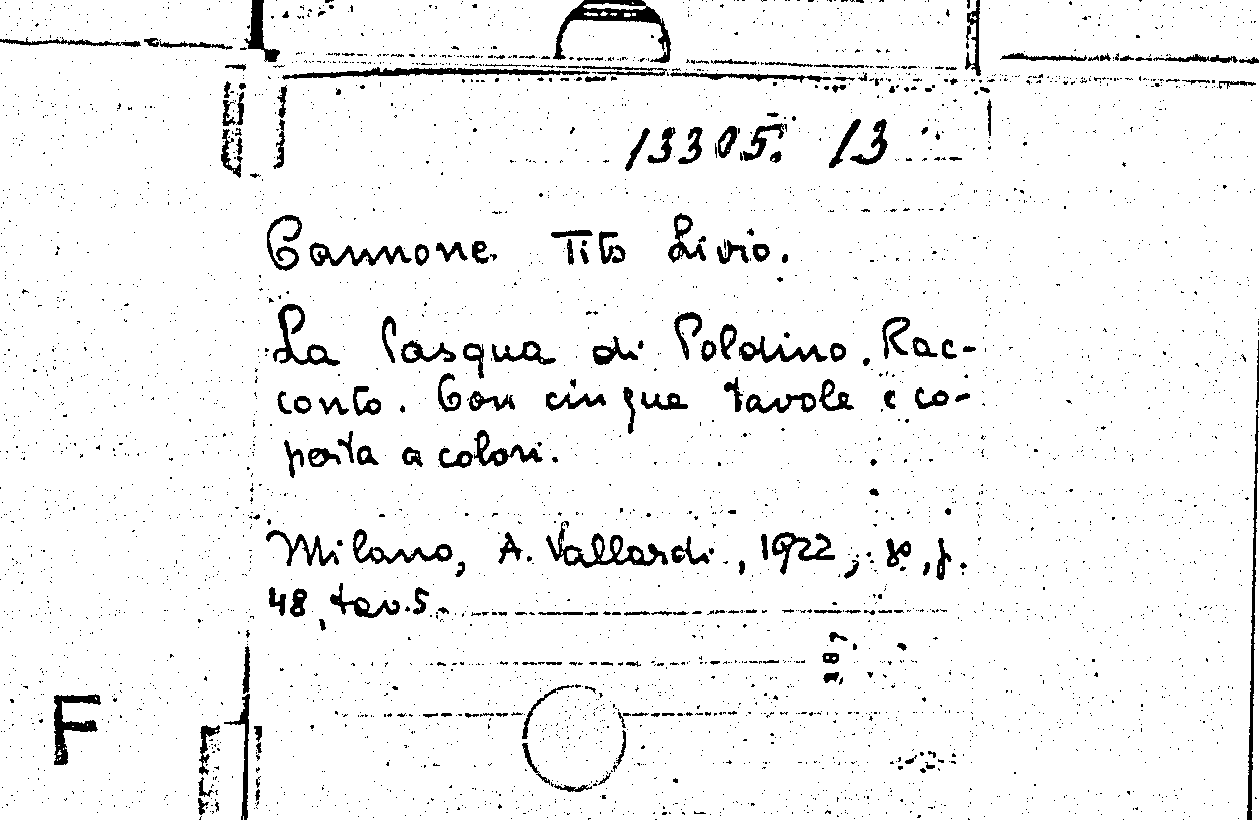 13305. 13
Cannone Tito Livio.
La Pasqua di Poldino. Rac-
conto. Con cinque tavole e co-
perta a colori.
Milano, A. Vallardi, 1922, 8°, p.
48, tav. 5.
187
F